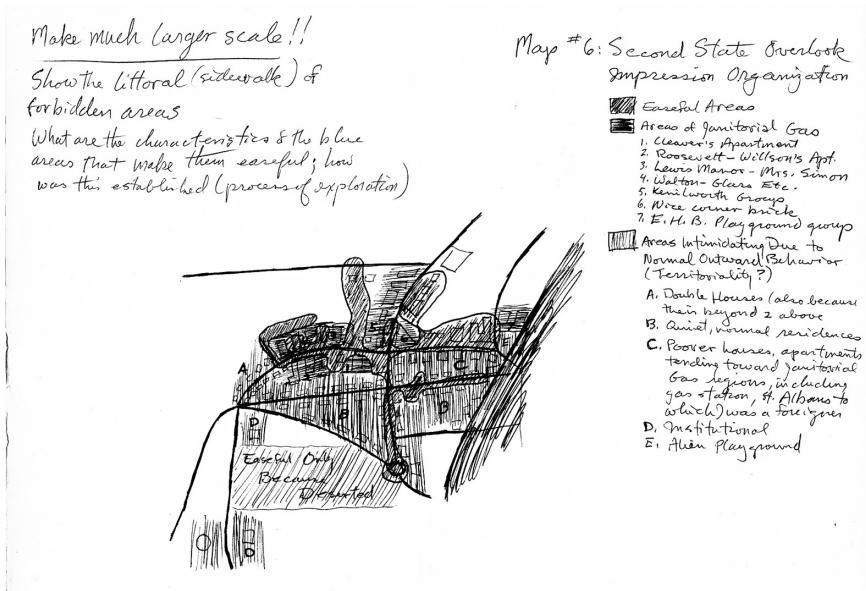 Make much larger scale!!
Show the littoral (sidewalk) of
forbidden areas
What are the characteristics of the blue
areas that make them easeful; how
was this established (process of exploration)
Map #6: Second State Overlook
Impression Organization
Easeful Areas
Areas of Janitorial Gas
1. Cleaver's Apartment
2. Roosevelt - Willson's Apt.
3. Lewis Manor - Mrs. Simon
4. Walton - Glass Etc.
5. Kenilworth Group
6. Nice corner brick
7. E.H.B. Playground group
Areas Intimidating Due to
Normal Outward Behavior
(Territoriality?)
A. Double Houses (also because
their beyond 2 above
B. Quiet, normal residences
C. Poorer houses, apartments
tending toward Janitorial
Gas regions, including
gas station, St. Albans to
which I was a foreigner
D. Institutional
E. Alien Playground
A
C
B
D
D
Easeful Only
Because
Deserted
D